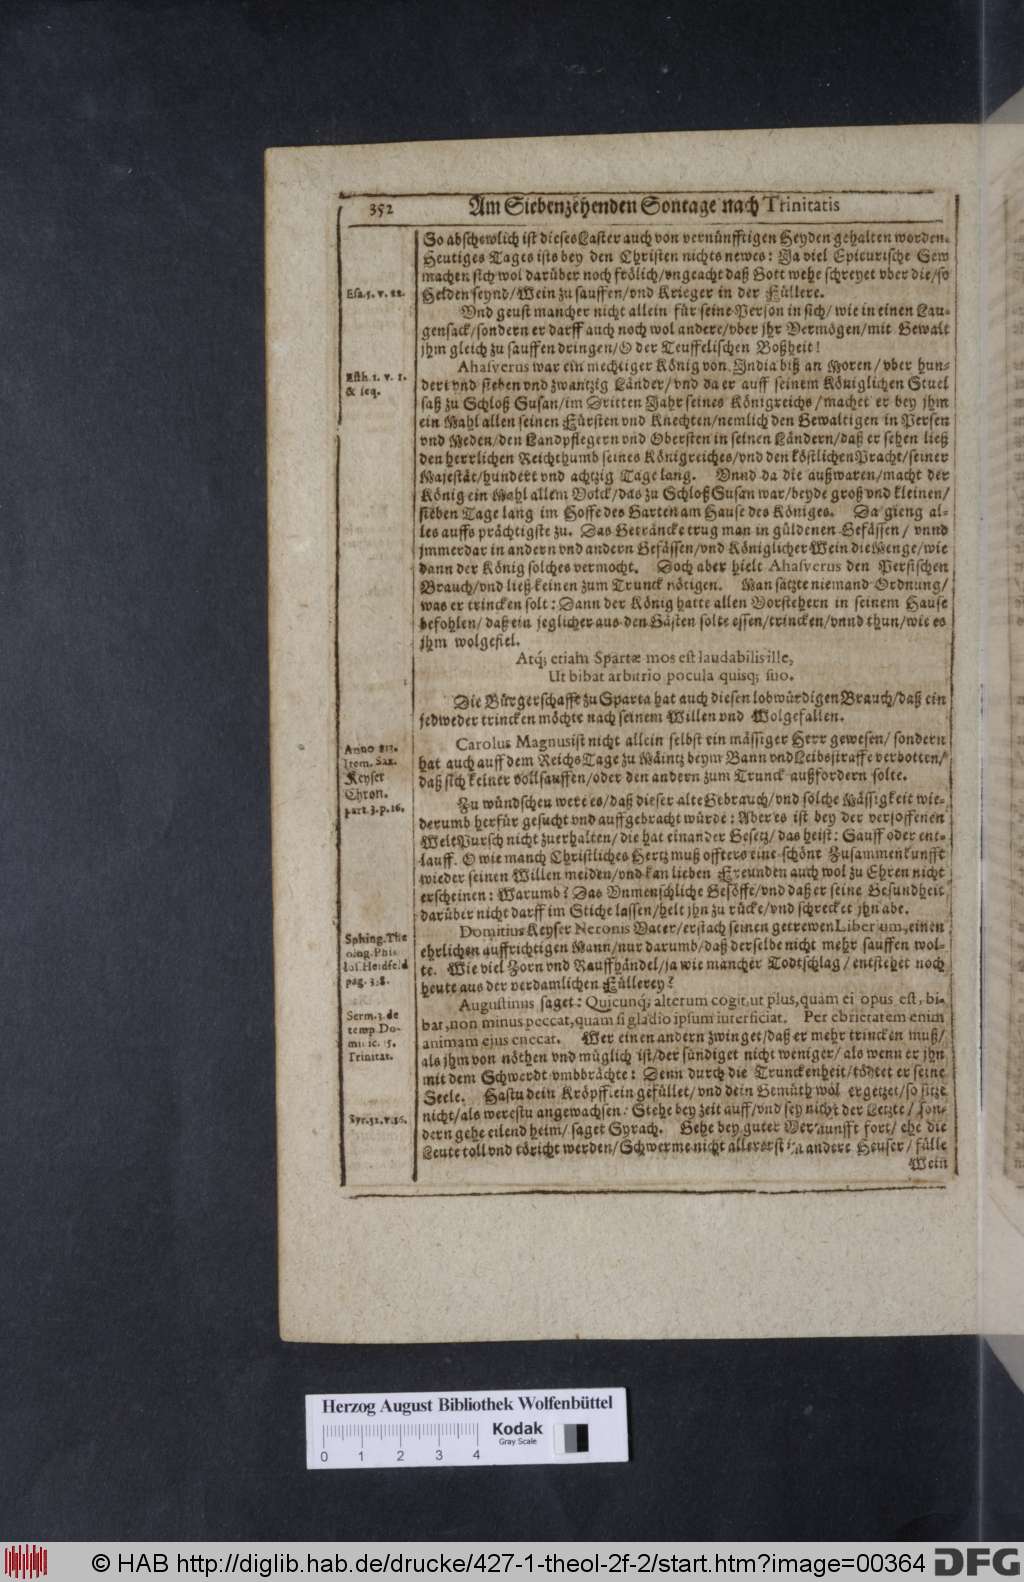 352
Am Siebenzehenden Sontage nach Trinitatis
So abschewlich ist dieses Laster auch von vernünfftigen Heyden gehalten worden.
Heutiges Tages ists bey den Christen nichts newes: Ja viel Epicurische Sew
machen sich wol darüber noch frölich/vngeacht daß Gott wehe schreyet vber die/so
Esa. 5. v. 22.
Helden seynd/Wein zu sauffen/vnd Krieger in der Füllere.
Vnd geust mancher nicht allein für seine Person in sich/ wie in einen Lau-
gensack/sondern er darff auch noch wol andere/vber jhr Vermögen/mit Gewalt
jhm gleich zu sauffen dringen/O der Teuffelischen Boßheit!
Ahasverus war ein mechtiger König von India biß an Moren/ vber hun-
Esth. 1. v. 1.
& seq.
dert vnd sieben vnd zwantzig Länder/ vnd da er auff seinem Königlichen Stuel
saß zu Schloß Susan/im Dritten Jahr seines Königreichs/machet er bey jhm
ein Mahl allen seinen Fürsten vnd Knechten/nemlich den Gewaltigen in Persen
vnd Meden/den Landpflegern vnd Obersten in seinen Ländern/daß er sehen ließ
den herrlichen Reichthumb seines Königreiches/vnd den köstlichen Pracht/seiner
Majestät/hundert vnd achtzig Tage lang. Vnnd da die auß waren/macht der
König ein Mahl allem Volck/das zu Schloß Susan war/beyde groß vnd kleinen/
sieben Tage lang im Hoffe des Garten am Hause des Königes. Da gieng al-
les auffs prächtigste zu. Das Geträncke trug man in güldenen Gefässen/ vnnd
jmmerdar in andern vnd andern Gefässen/vnd Königlicher Wein die Menge/wie
dann der König solches vermocht. Doch aber hielt Ahasverus den Persischen
Brauch/vnd ließ keinen zum Trunck nötigen. Man satzte niemand Ordnung/
was er trincken solt: Dann der König hatte allen Vorstehern in seinem Hause
befohlen/ daß ein jeglicher aus den Gästen solte essen/trincken/vnnd thun/wie es
jhm wolgefiel.
Atq; etiam Spartæ mos est laudabilis ille,
Ut bibat arbitrio pocula quisq; suo.
Die Bürgerschafft zu Sparta hat auch diesen lobwürdigen Brauch/daß ein
jedweder trincken möchte nach seinem Willen vnd Wolgefallen.
Anno 813.
Irom. Sax.
Keyser
Chron.
part. 3. p. 16.
Carolus Magnus ist nicht allein selbst ein mässiger Herr gewesen/ sondern
hat auch auff dem Reichs Tage zu Mäintz beym Bann vnd Leibsstraffe verbotten/
daß sich keiner vollsauffen/oder den andern zum Trunck außfordern solte.
Zu wündschen were es/daß dieser alte Gebrauch/vnd solche Mässigkeit wie-
derumb herfür gesucht vnd auffgebracht würde: Aber es ist bey der versoffenen
Welt Pursch nicht zuerhalten/die hat einander Gesetz/ das heist: Sauff oder ent-
lauff. O wie manch Christliches Hertz muß offters eine schöne Zusammenkunfft
wieder seinen Willen meiden/vnd kan lieben Freunden auch wol zu Ehren nicht
erscheinen: Warumb? Das Vnmenschliche Gesöffe/vnd daß er seine Gesundheit
darüber nicht darff im Stiche lassen/helt jhn zu rücke/vnd schrecket jhn abe.
Sphing. The
olog. Phi-
los. Heidfeld
pag. 318.
Domitius Keyser Neronis Vater/erstach seinen getrewen Liberum, einen
ehrlichen auffrichtigen Mann/nur darumb/daß derselbe nicht mehr sauffen wol-
te. Wie viel Zorn vnd Rauffhändel/ja wie mancher Todtschlag/ entstehet noch
heute aus der verdamlichen Füllerey?
Serm. 3. de
temp. Do-
minic. 15.
Trinitat.
Augustinus saget: Quicunq; alterum cogit, ut plus, quam ei opus est, bi-
bat, non minus peccat, quam si gladio ipsum interficiat. Per ebrietatem enim
animam ejus enecat. Wer einen andern zwinget/daß er mehr trincken muß/
als jhm von nöthen vnd müglich ist/der sündiget nicht weniger/ als wenn er jhn
mit dem Schwerdt vmbbrächte: Denn durch die Trunckenheit/tödtet er seine
Seele. Hastu dein Kröpfflein gefüllet/vnd dein Gemüth wol ergetzet/so sitze
Syr. 32. v. 16.
nicht/als werestu angewachsen: Stehe bey zeit auff/vnd sey nicht der Letzte/ son-
dern gehe eilend heim/ saget Syrach. Gehe bey guter Vernunfft fort/ ehe die
Leute toll vnd töricht werden/Schwerme nicht allererst in andere Heuser/ fülle
Wein
Herzog August Bibliothek Wolfenbüttel
Kodak
Gray Scale
0 1 2 3 4
© HAB http://diglib.hab.de/drucke/427-1-theol-2f-2/start.htm?image=00364
DFG